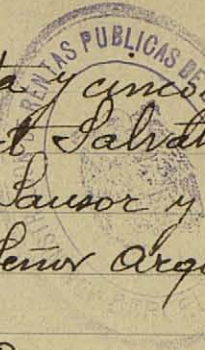 RENTAS PUBLICAS DE
ta y cinco
t Salvat
Sausor y
Señor Arqu